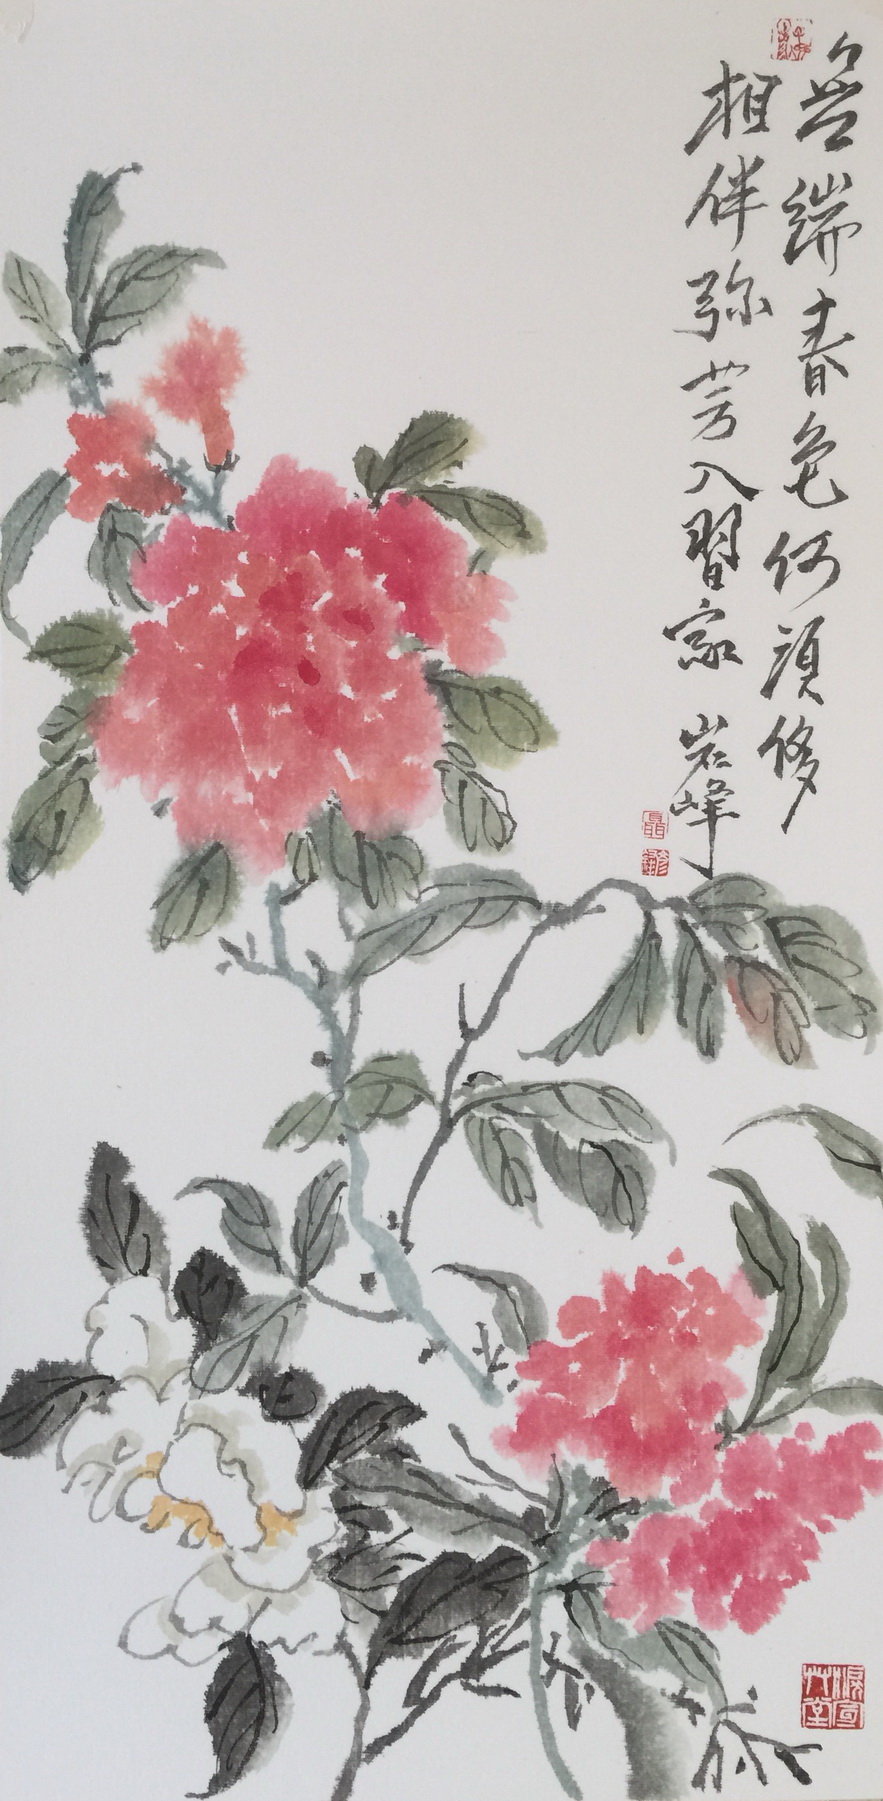 無端春色何須修
相伴弥芳入習家 岩峰